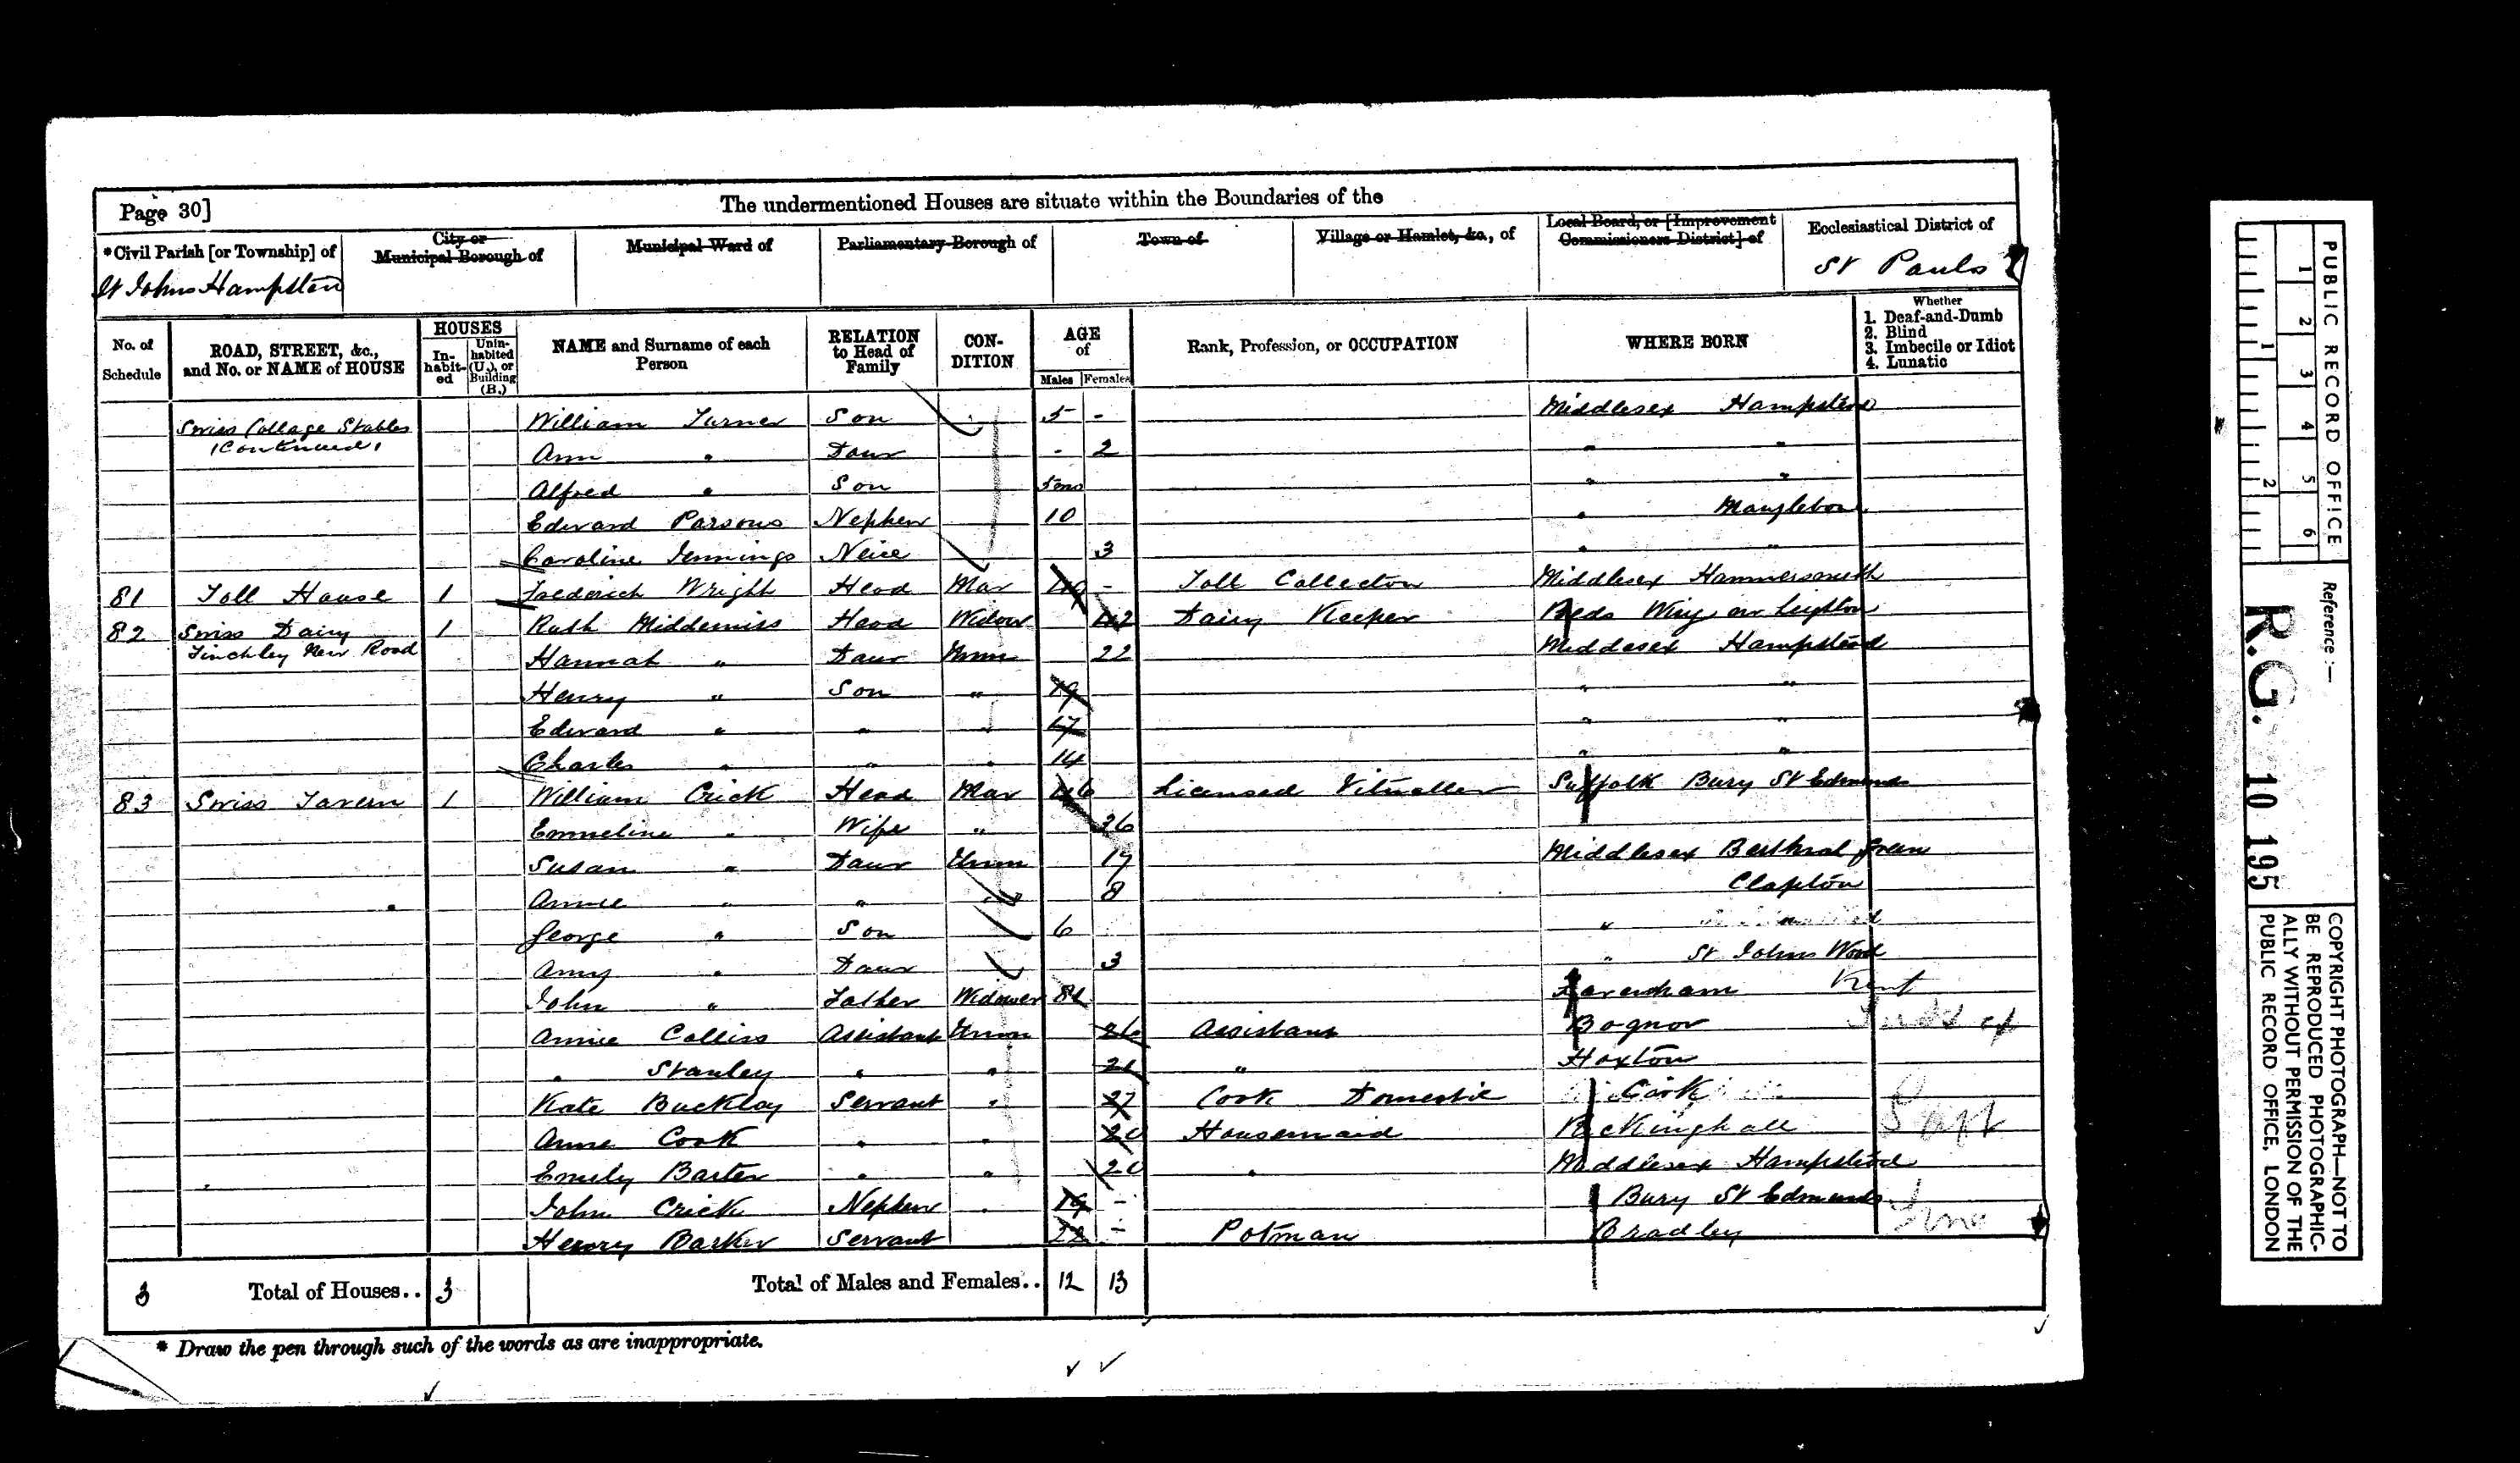 Page 30]
The undermentioned Houses are situate within the Boundaries of the
*Civil Parish [or Township] of
City or Municipal Borough of
Municipal Ward of
Parliamentary Borough of
Town of
Village or Hamlet, &c., of
Local Board, or [Improvement Commissioners District] of
Ecclesiastical District of
St Johns Hampstead
St Pauls
No. of Schedule
ROAD, STREET, &c., and No. or NAME of HOUSE
HOUSES
Inhabited
Uninhabited (U.), or Building (B.)
NAME and Surname of each Person
RELATION to Head of Family
CONDITION
AGE of
Males
Females
Rank, Profession, or OCCUPATION
WHERE BORN
Whether
1. Deaf-and-Dumb
2. Blind
3. Imbecile or Idiot
4. Lunatic
Swiss Cottage Stables William Turner Son 5 - Middlesex Hampstead
(Continued) Ann " Daur - 2 " "
Alfred " Son 5 mo " "
Edward Parsons Nephew 10 " Marylebone
Caroline Jennings Neice 3 " "
81 Toll House 1 Frederick Wright Head Mar 49 - Toll Collector Middlesex Hammersmith
82 Swiss Dairy 1 Ruth Middlemiss Head Widow 42 Dairy Keeper Beds Wing nr Leighton
Finchley New Road Hannah " Daur Unm 22 Middlesex Hampstead
Henry " Son " 19 " "
Edward " " " 17 " "
Charles " " " 14 " "
83 Swiss Tavern 1 William Crick Head Mar 46 Licensed Vitualler Suffolk Bury St Edmunds
Emmeline " Wife " 36
Susan " Daur Unm 17 Middlesex Bethnal Green
Annie " " " 8 Clapton
George " Son 6 " "
Amy " Daur 3 " St Johns Wood
John " Father Widower 82 Faversham Kent
Annie Colliss Assistant Unm 26 Assistant Bognor Sussex
" Stanley " " 21 " Hoxton
Kate Buckley Servant " 27 Cook Domestic Cork
Anne Cook " " 20 Housemaid Rickinghall Suff
Emily Barter " " 20 " Middlesex Hampstead
John Crick Nephew " 19 - Bury St Edmunds
Henry Barker Servant 22 - Potman Bradley
3 Total of Houses.. 3 Total of Males and Females.. 12 13
* Draw the pen through such of the words as are inappropriate.
PUBLIC RECORD OFFICE
1 2 3 4 5 6
1 2
Reference :—
R.G. 10 195
COPYRIGHT PHOTOGRAPH—NOT TO
BE REPRODUCED PHOTOGRAPHIC-
ALLY WITHOUT PERMISSION OF THE
PUBLIC RECORD OFFICE, LONDON